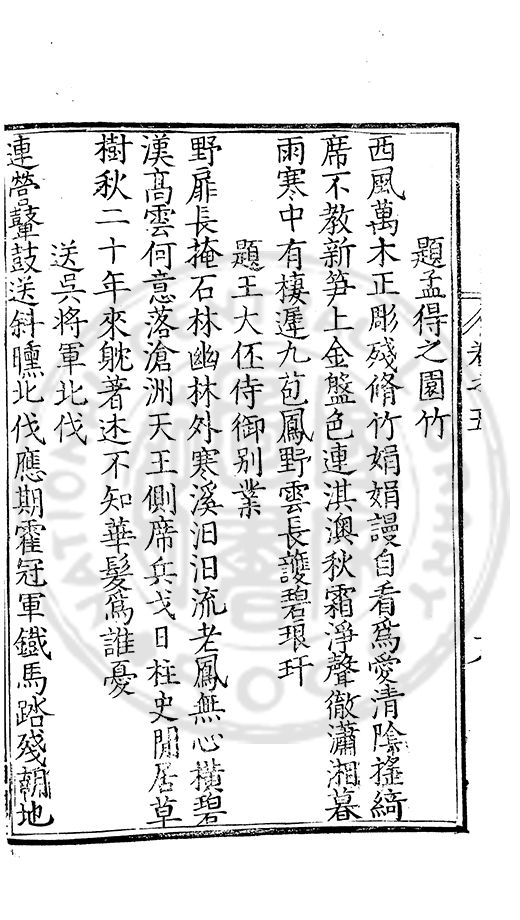 題孟得之園竹
西風萬木正彫殘脩竹娟娟謾自看爲愛清陰搖綺
席不教新笋上金盤色連淇澳秋霜淨聲徹瀟湘暮
雨寒中有棲遲九苞鳳野雲長護碧琅玕
題王大伾侍御別業
野扉長掩石林幽林外寒溪汩汩流老鳳無心橫碧
漢高雲何意落滄洲天王側席兵戈日柱史閒居草
樹秋二十年來躭著述不知華髮爲誰憂
送吳將軍北伐
連營鼙鼓送斜曛北伐應期霍冠軍鐵馬踏殘朝地